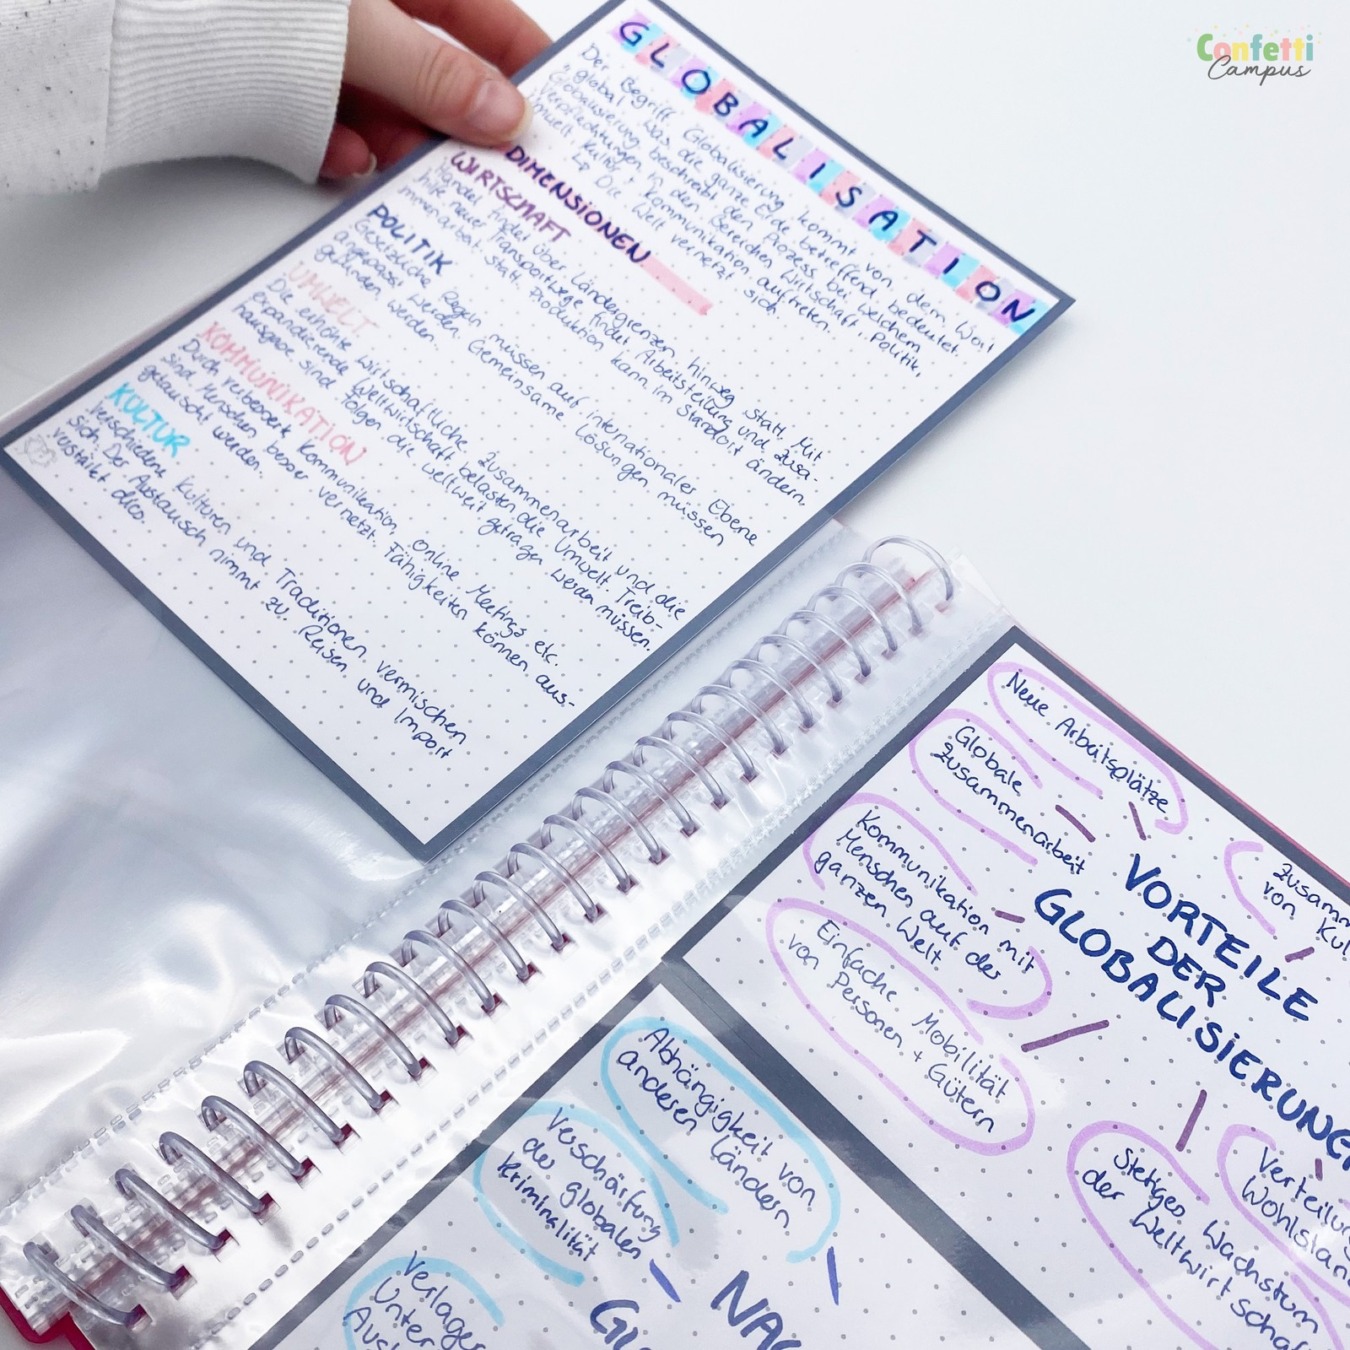 Confetti
Campus
GLOBALISATION
Der Begriff Globalisierung kommt von dem Wort
"global" was die ganze Erde betreffend bedeutet.
Globalisierung beschreibt den Prozess bei welchem
Verpflechtungen in den Bereichen Wirtschaft, Politik,
Umwelt, Kultur + Kommunikation auftreten.
↳ Die Welt vernetzt sich.
DIMENSIONEN
WIRTSCHAFT
Handel findet über Ländergrenzen hinweg statt. Mit
Hilfe neuer Transportwege findet Arbeitsteilung und Zusa-
mmenarbeit statt. Produktion kann im Standort ändern.
POLITIK
Gesetzliche Regeln müssen auf internationales Ebene
angepasst werden. Gemeinsame Lösungen müssen
gefunden werden.
UMWELT
Die erhöhte wirtschaftliche Zusammenarbeit und die
expandierende Weltwirtschaft belasten die Umwelt. Treib-
hausgase sind Folgen die weltweit getragen werden müssen.
KOMMUNIKATION
Durch verbesserte Kommunikation, Online Meetings etc.
sind Menschen besser vernetzt. Fähigkeiten können aus-
getauscht werden.
KULTUR
Verschiedene Kulturen und Traditionen vermischen
sich. Der Austausch nimmt zu. Reisen und Import
verstärkt dies.
Neue Arbeitsplätze
Globale
Zusammenarbeit
Kommunikation mit
Menschen auf der
ganzen Welt
Einfache Mobilität
von Personen + Gütern
VORTEILE
DER
GLOBALISIERUNG
von
Stetiges Wachstum
der
Abhängigkeit von
anderen Ländern
Verschärfung
der globalen
Kriminalität